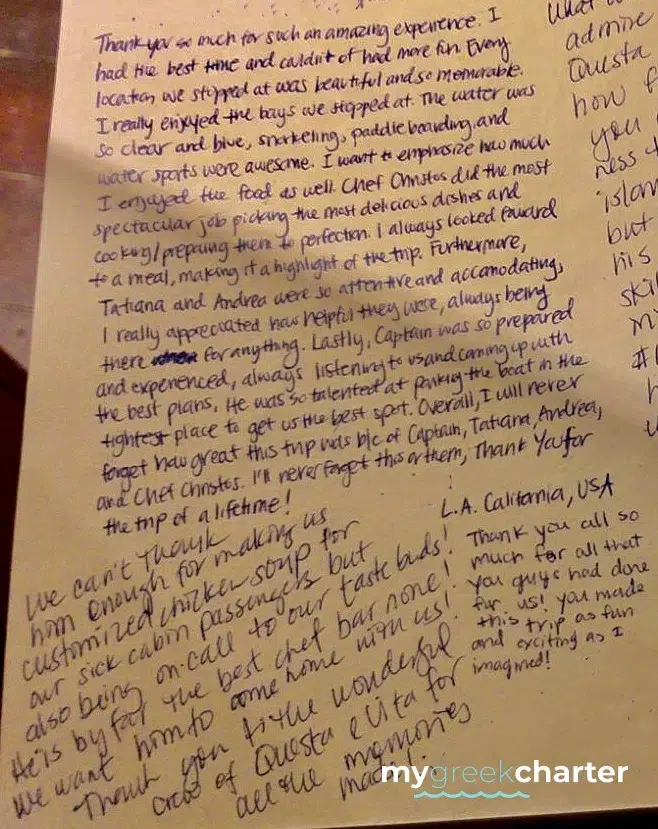 Thank you so much for such an amazing experience. I
had the best time and couldn't of had more fun. Every
location we stopped at was beautiful and so memorable.
I really enjoyed the bays we stopped at. The water was
so clear and blue, snorkeling, paddleboarding, and
water sports were awesome. I want to emphasize how much
I enjoyed the food as well. Chef Christos did the most
spectacular job picking the most delicious dishes and
cooking/preparing them to perfection. I always looked forward
to a meal, making it a highlight of the trip. Furthermore,
Tatiana and Andrea were so attentive and accomodating,
I really appreciated how helpful they were, always being
there for anything. Lastly, Captain was so prepared
and experienced, always listening to us and coming up with
the best plans. He was so talented at parking the boat in the
tightest place to get us the best spot. Overall, I will never
forget how great this trip was b/c of Captain, Tatiana, Andrea,
and Chef Christos. I'll never forget this or them, Thank You for
the trip of a lifetime!
L.A. California, USA
We can't thank
him enough for making us
customized chicken soup for
our sick cabin passengers but
also being on-call to our taste buds!
He is by far the best chef bar none!
We want him to come home with us!
Thank you to the wonderful
crew of Questa e Vita for
all the memories
made!
Thank you all so
much for all that
you guys had done
for us! you made
this trip as fun
and exciting as I
imagined!
What
admire
Questa
how f
you
ness +
islan
but
his
skil
mygreekcharter